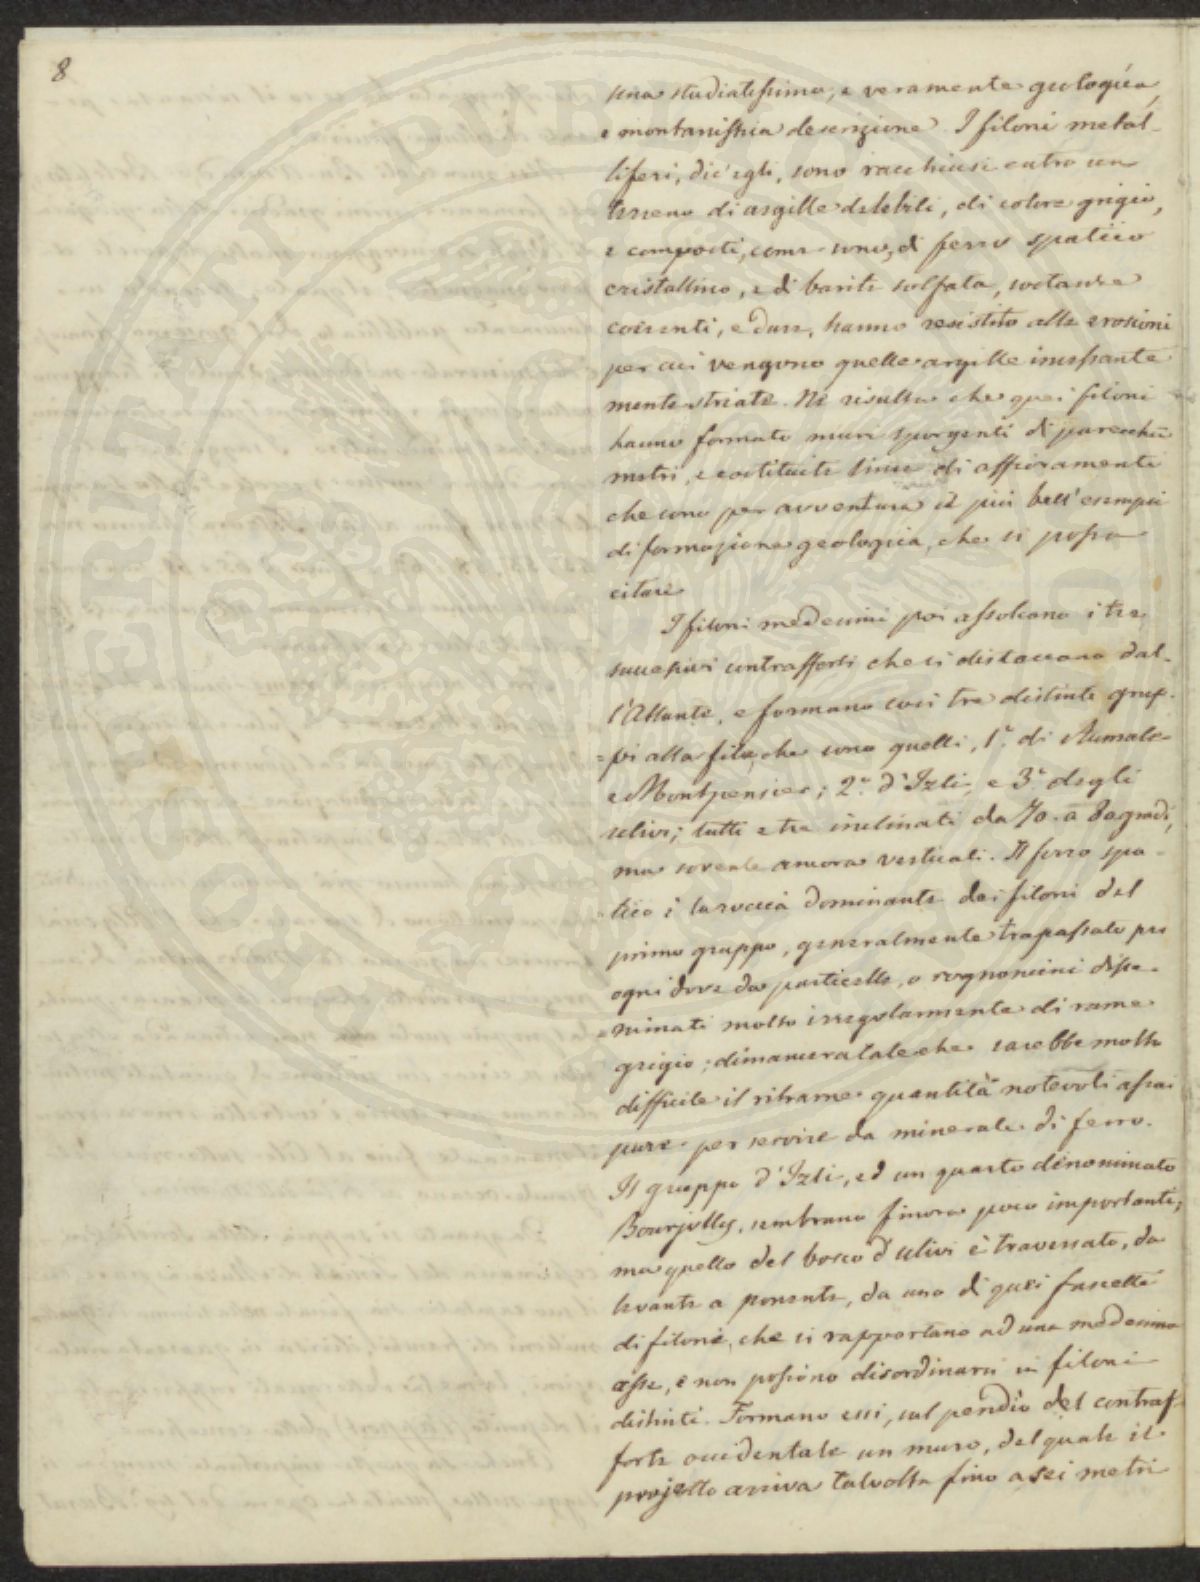 8
una studiatissima, e veramente geologica,
e montanistica descrizione. I filoni metal-
liferi, dic'egli, sono racchiusi entro un
terreno di argille delebili, di colore grigio,
e composti, come sono, di ferro spatico
cristallino, e di barite solfata, sostanze
coerenti, e dure, hanno resistito alle erosioni
per cui vengono quelle argille incessante
mente striate. Ne risulta che quei filoni
hanno formato muri sporgenti di parecchi
metri, e costituite linee di affioramenti
che sono per avventura il più bell'esempio
di formazione geologica, che si possa
citare
I filoni medesimi poi assolcano i tre
successivi contrafforti che si distaccano dal-
l'Atlante, e formano così tre distinti grup-
=pi alla fila, che sono quelli, 1.° di Aumale-
e Montpensier; 2.° d'Izli, e 3.° degli
ulivi; tutti e tre inclinati da 70. a 80 gradi,
ma sovente ancora verticali. Il ferro spa-
=tico è la roccia dominante dei filoni del
primo gruppo, generalmente trapassato per
ogni dove da particelle, o rognoncini disse-
=minati molto irregolarmente di rame
grigio; dimanieratale che sarebbe molto
difficile il ritrarne quantità notevoli assai
pure per servire da minerale di ferro.
Il gruppo d'Izli, ed un quarto denominato
Bourjolly, sembrano finora poco importanti;
ma quello del bosco d'ulivi è traversato, da
levante a ponente, da uno di quei fascetti
di filoni, che si rapportano ad una medesima
asse, e non possono disordinarsi in filoni
distinti. Formano essi, sul pendìo del contraf-
forte occidentale un muro, del quale il
projetto arriva talvolta fino a sei metri